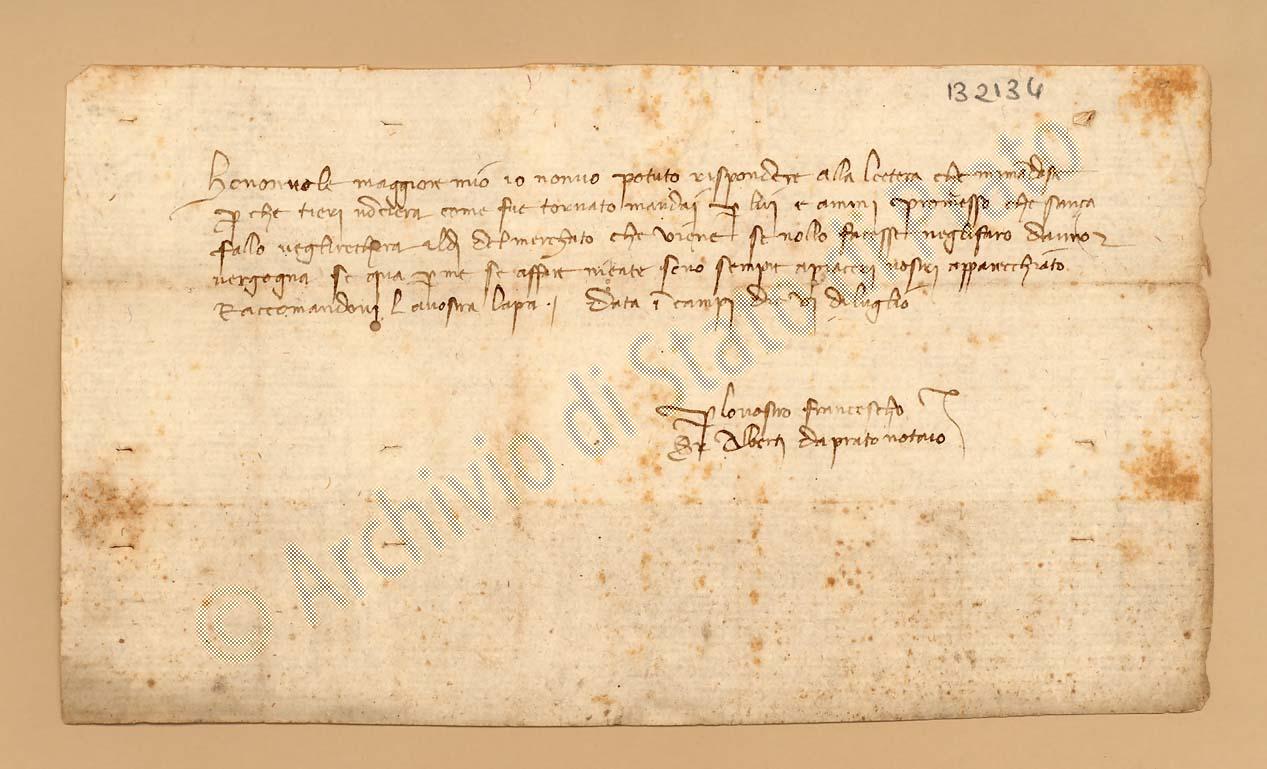 132134
Honorevole maggiore mio io nonvo potuto rispondere alla lectera che mi mandaste
p che tieri non cera come fue tornato mandai p lui e ammi promesso che sança
fallo vegli rechera al di del merchato che viene se nollo facesse neglifaro davero
vergogna se qua p me se affare niente sono sempre apiaceri vostri apparecchiato
Raccomandovi la vostra lapa. Data i campi dì vi di luglio
p lo vostro Francescho
Ser Alberti da prato notaio
© Archivio di Stato di Prato